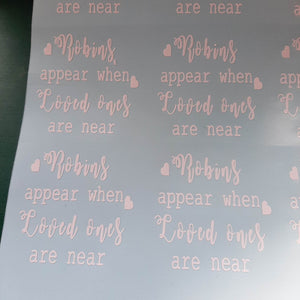 are near
are near
Robins
appear when
Loved ones
are near
Robins
appear when
Loved ones
are near
Robins
appear when
Loved ones
are near
Robins
appear when
Loved ones
are near